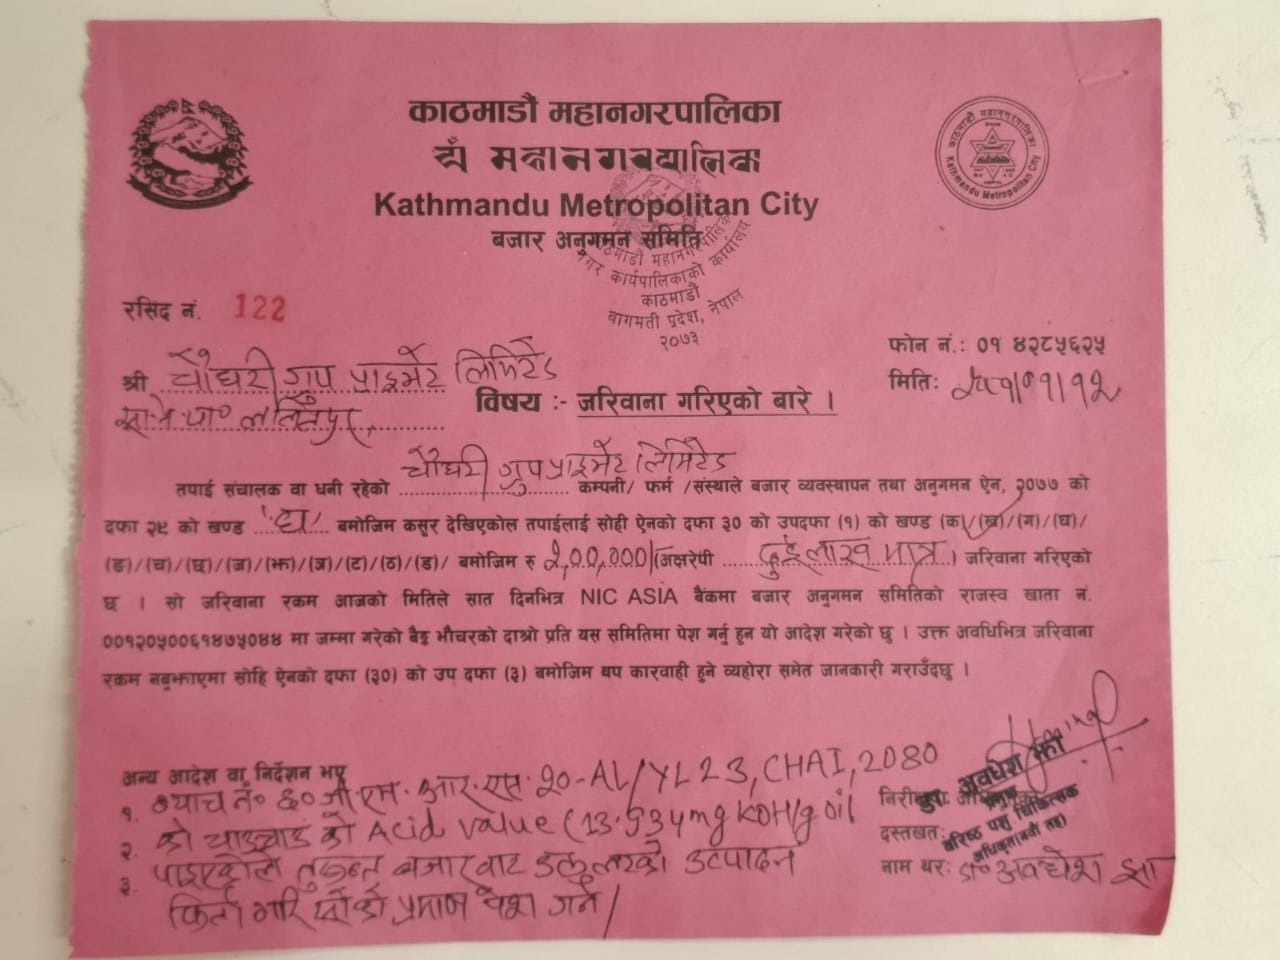 काठमाडौं महानगरपालिका
Kathmandu Metropolitan City
बजार अनुगमन समिति
काठमाडौं महानगरपालिका
नगर कार्यपालिकाको कार्यालय
काठमाडौं
बागमती प्रदेश, नेपाल
२०७३
काठमाडौं महानगरपालिका
Kathmandu Metropolitan City
रसिद नं. 122
फोन नं.: ०१ ४२८५६२५
श्री चौधरी ग्रुप प्राइभेट लिमिटेड
मिति:
ललितपुर,
विषय :- जरिवाना गरिएको बारे ।
तपाईं संचालक वा धनी रहेको चौधरी ग्रुप प्राइभेट लिमिटेड कम्पनी/ फर्म /संस्थाले बजार व्यवस्थापन तथा अनुगमन ऐन, २०७७ को
दफा २९ को खण्ड 'घ' बमोजिम कसुर देखिएकोल तपाईलाई सोही ऐनको दफा ३० को उपदफा (१) को खण्ड (क)/(ख)/(ग)/(घ)/
(ङ)/(च)/(छ)/(ज)/(झ)/(ञ)/(ट)/(ठ)/(ड)/ बमोजिम रु २,00,000/(अक्षरेपी दुई लाख मात्र) जरिवाना गरिएको
छ । सो जरिवाना रकम आजको मितिले सात दिनभित्र NIC ASIA बैंकमा बजार अनुगमन समितिको राजस्व खाता नं.
००१२०५००६१४७५०४४ मा जम्मा गरेको बैङ्क भौचरको दाश्रो प्रति यस समितिमा पेश गर्नु हुन यो आदेश गरेको छु । उक्त अवधिभित्र जरिवाना
रकम नबुझाएमा सोहि ऐनको दफा (३०) को उप दफा (३) बमोजिम थप कारवाही हुने व्यहोरा समेत जानकारी गराउँदछु ।
अन्य आदेश वा निर्देशन भए
१. ब्याच नं० ६० जी.एम. आर.एस. २०-AL/YL23, CHAI, 2080
२. को चाउचाउ को Acid Value (13.934mg KOH/g oil
३. पाइएकोले तुरुन्त बजारबाट उत्पादन
फिर्ता गरि सोको प्रमाण पेश गर्ने/
अवधेश झा
प्रमुख
बरिष्ठ पशु चिकित्सक
दस्तखत:
नाम थर: डा० अवधेश झा